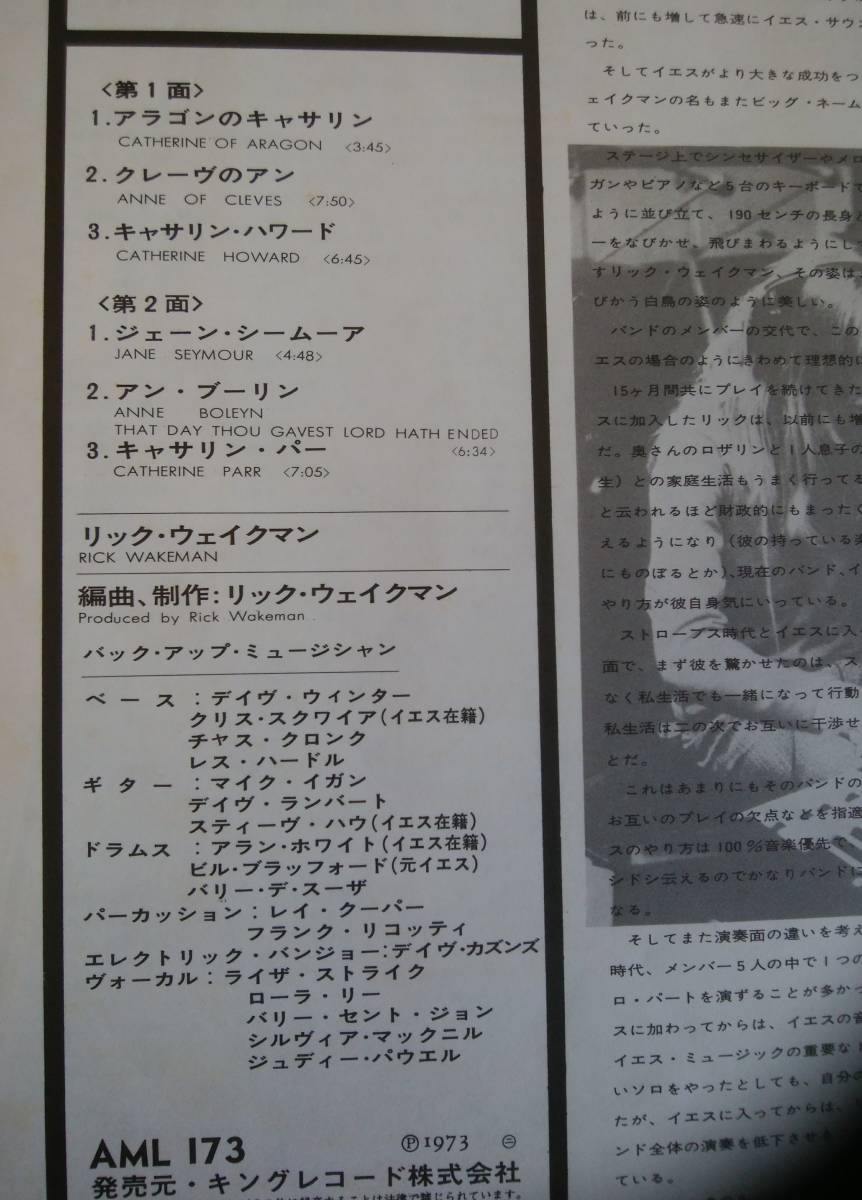 <第1面>
1.アラゴンのキャサリン
CATHERINE OF ARAGON <3:45>
2.クレーヴのアン
ANNE OF CLEVES <7:50>
3.キャサリン・ハワード
CATHERINE HOWARD <6:45>
<第2面>
1.ジェーン・シームーア
JANE SEYMOUR <4:48>
2.アン・ブーリン
ANNE BOLEYN
THAT DAY THOU GAVEST LORD HATH ENDED
<6:34>
3.キャサリン・パー
CATHERINE PARR <7:05>
リック・ウェイクマン
RICK WAKEMAN
編曲、制作:リック・ウェイクマン
Produced by Rick Wakeman
バック・アップ・ミュージシャン
ベース:デイヴ・ウィンター
クリス・スクワイア(イエス在籍)
チャス・クロンク
レス・ハードル
ギター:マイク・イガン
デイヴ・ランバート
スティーヴ・ハウ(イエス在籍)
ドラムス:アラン・ホワイト(イエス在籍)
ビル・ブラッフォード(元イエス)
バリー・デ・スーザ
パーカッション:レイ・クーパー
フランク・リコッティ
エレクトリック・バンジョー:デイヴ・カズンズ
ヴォーカル:ライザ・ストライク
ローラ・リー
バリー・セント・ジョン
シルヴィア・マックニル
ジュディー・パウエル
AML 173 Ⓟ1973 ㊁
発売元・キングレコード株式会社
は、前にも増して急速にイエス・サウ
った。
そしてイエスがより大きな成功をつ
ェイクマンの名もまたビッグ・ネーム
ていった。
ステージ上でシンセサイザーやメロ
ガンやピアノなど5台のキーボードで
ように並び立て、190センチの長身と
ーをなびかせ、飛びまわるようにして
すリック・ウェイクマン、その姿は、
びかう白鳥の姿のように美しい。
バンドのメンバーの交代で、この
エスの場合のようにきわめて理想的に
15ヶ月間共にプレイを続けてきた
スに加入したリックは、以前にも増
だ。奥さんのロザリンと1人息子の
生)との家庭生活もうまく行ってる
と云われるほど財政的にもまったく
えるようになり(彼の持っている
にものぼるとか)、現在のバンド、イ
やり方が彼自身気にいっている。
ストローブス時代とイエスに入っ
面で、まず彼を驚かせたのは、ス
なく私生活でも一緒になって行動
私生活は二の次でお互いに干渉せ
とだ。
これはあまりにもそのバンドの
お互いのプレイの欠点などを指適
スのやり方は100%音楽優先で、
シドシ云えるのでかなりバンドに
なる。
そしてまた演奏面の違いを考え
時代、メンバー5人の中で1つの
ロ・パートを演ずることが多かっ
スに加わってからは、イエスの音
イエス・ミュージックの重要な
いソロをやったとしても、自分の
たが、イエスに入ってからは、
ンド全体の演奏を低下させ
ている。